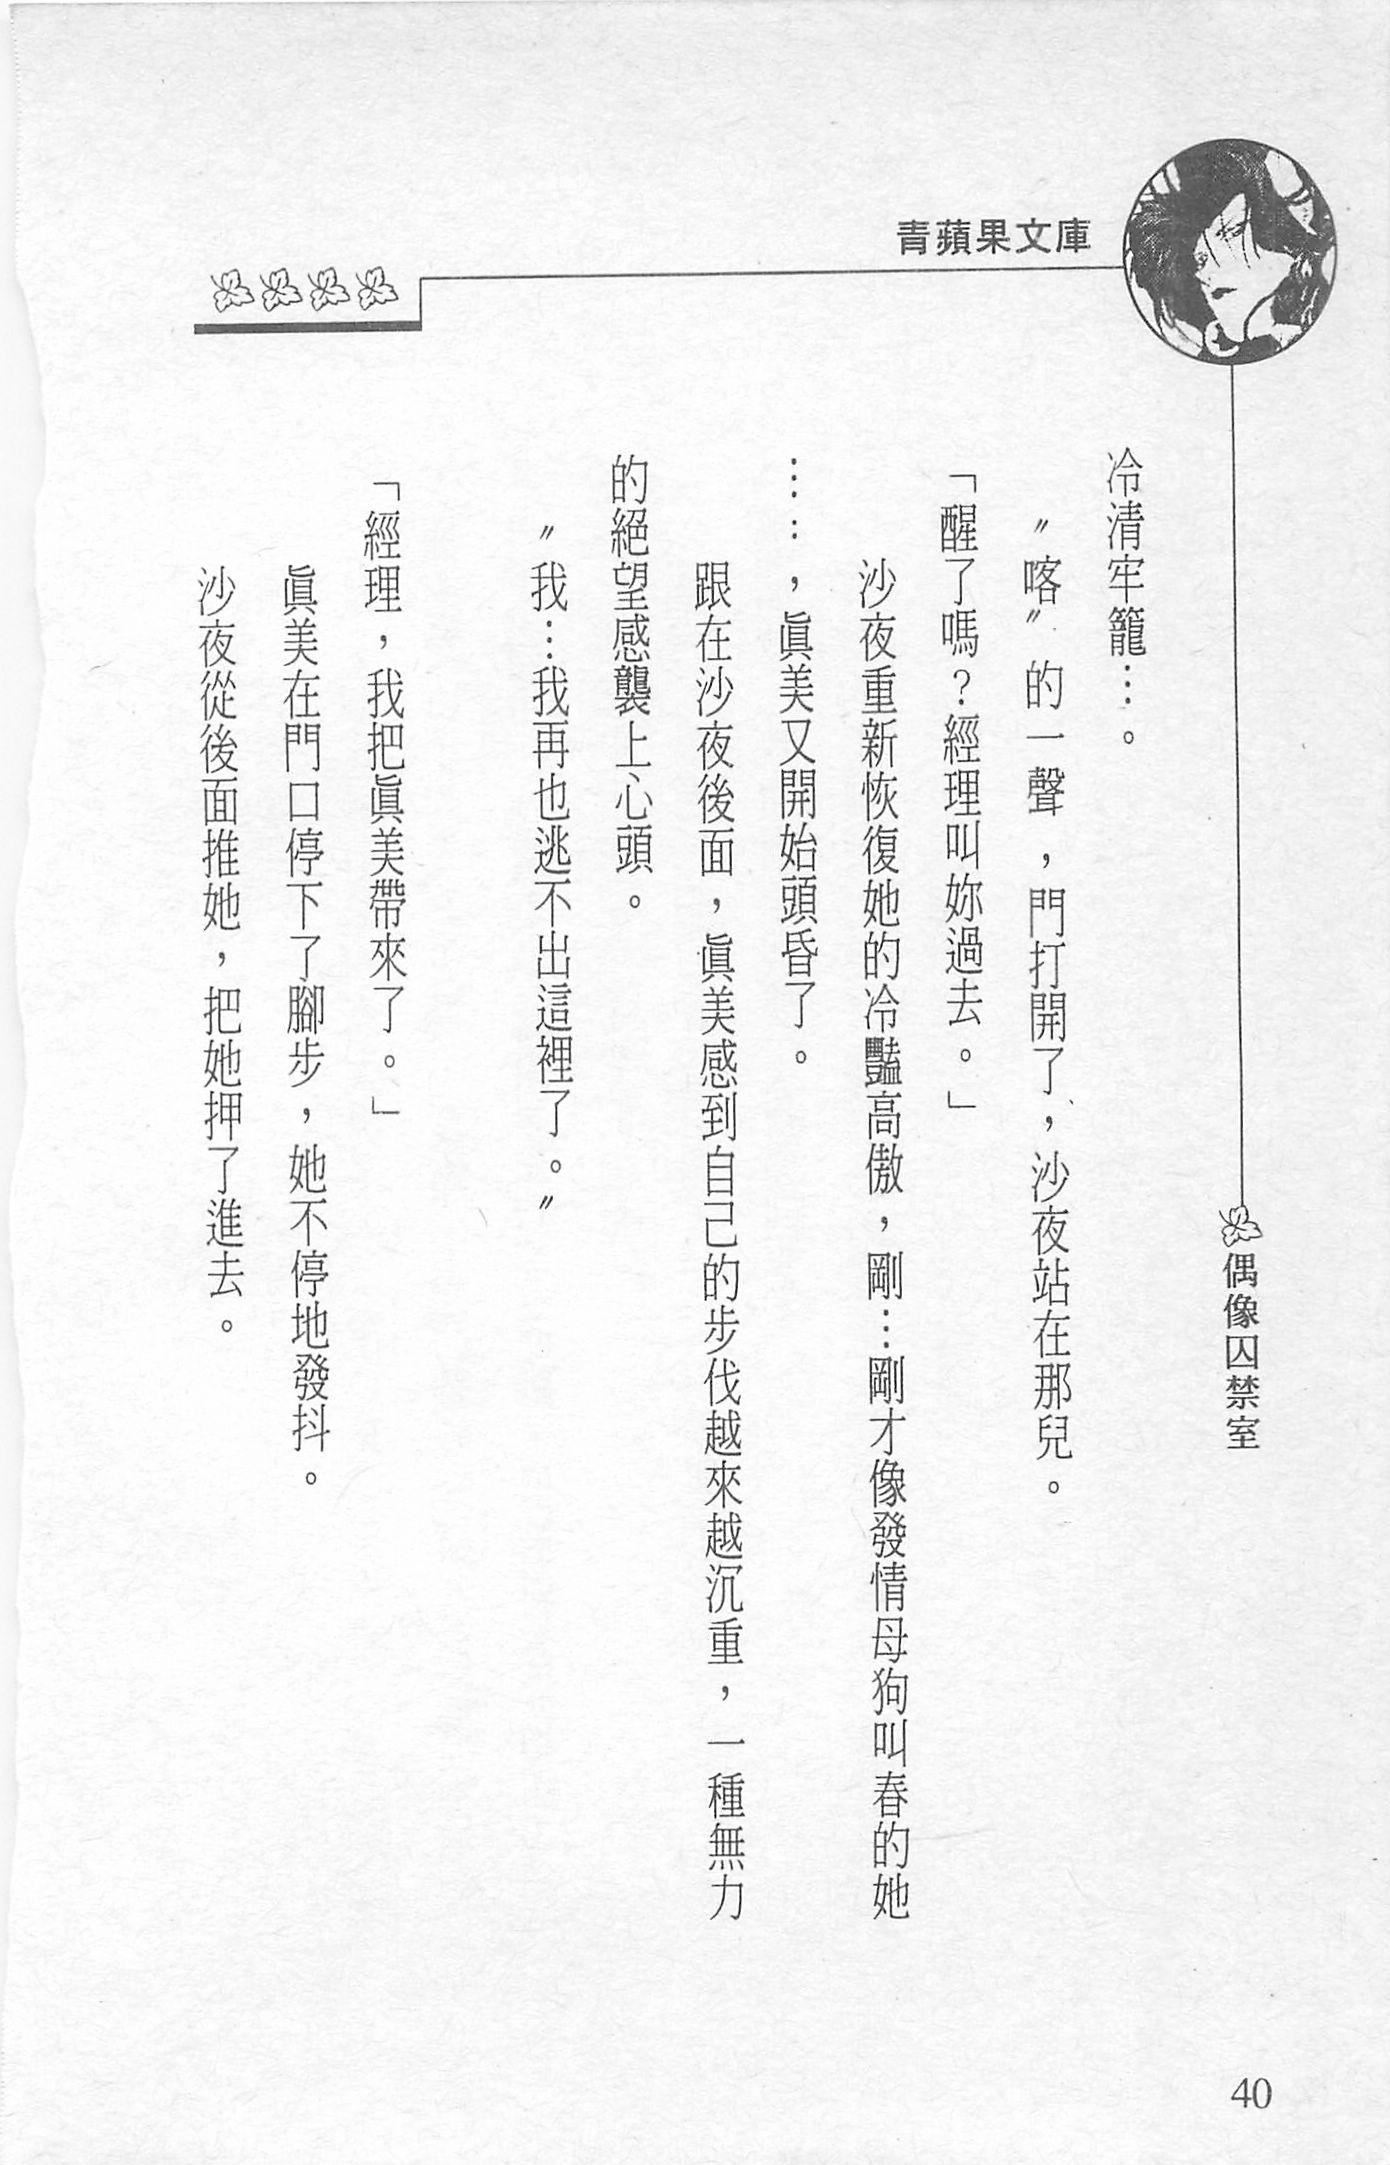 青蘋果文庫
偶像囚禁室
冷清牢籠…。
〝喀〞的一聲，門打開了，沙夜站在那兒。
「醒了嗎？經理叫妳過去。」
沙夜重新恢復她的冷豔高傲，剛…剛才像發情母狗叫春的她
……，眞美又開始頭昏了。
跟在沙夜後面，眞美感到自己的步伐越來越沉重，一種無力
的絕望感襲上心頭。
〝我…我再也逃不出這裡了。〞
「經理，我把眞美帶來了。」
眞美在門口停下了腳步，她不停地發抖。
沙夜從後面推她，把她押了進去。
40